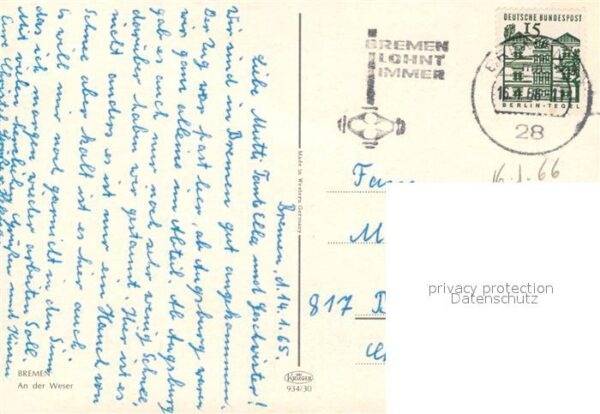 Bremen, d. 14.1.65.
Liebe Mutti Tante Ella und Geschwister!
Wir sind in Bremen gut angekommen.
Der Zug war fast leer, ab Augsburg waren
wir ganz alleine im Abteil. Ab Augsburg
gab es auch nur noch sehr wenig Schnee,
darüber haben wir gestaunt. Hier ist es
nicht anders es ist nur ein Hauch von
Schnee aber kalt ist es hier auch.
Es will mir noch garnicht in den Sinn
das ich morgen wieder arbeiten soll.
Mit vielen Grüßen und Küssen
Eure
BREMEN
An der Weser
Made in Western Germany
KRÜGER
934/30
BREMEN
LOHNT
IMMER
DEUTSCHE BUNDESPOST
15
BERLIN-TEGEL
28
16.1.66
Fam
M
817 B
privacy protection
Datenschutz